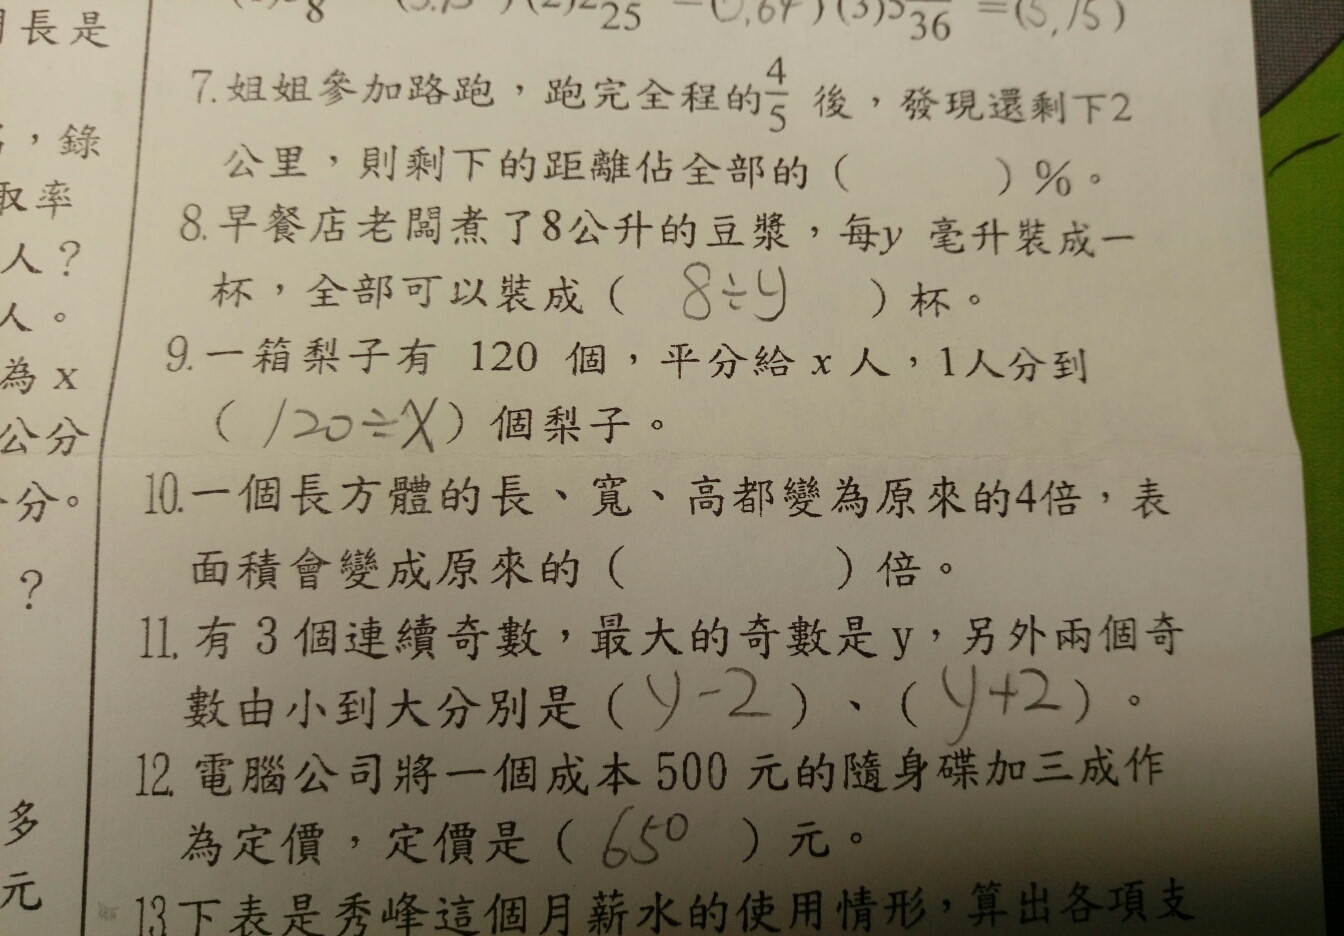 8
25
=(0,64)(3)5
36
=(5,15)
7.姐姐參加路跑，跑完全程的4/5 後，發現還剩下2
公里，則剩下的距離佔全部的（ ）%。
8.早餐店老闆煮了8公升的豆漿，每y 毫升裝成一
杯，全部可以裝成（ 8÷y ）杯。
9.一箱梨子有 120 個，平分給 x 人，1人分到
（120÷X）個梨子。
10.一個長方體的長、寬、高都變為原來的4倍，表
面積會變成原來的（ ）倍。
11.有 3 個連續奇數，最大的奇數是 y，另外兩個奇
數由小到大分別是（y-2）、（y+2）。
12.電腦公司將一個成本 500 元的隨身碟加三成作
為定價，定價是（ 650 ）元。
13下表是秀峰這個月薪水的使用情形，算出各項支
長是
，錄
取率
人？
人。
為 x
公分
分。
？
多
元